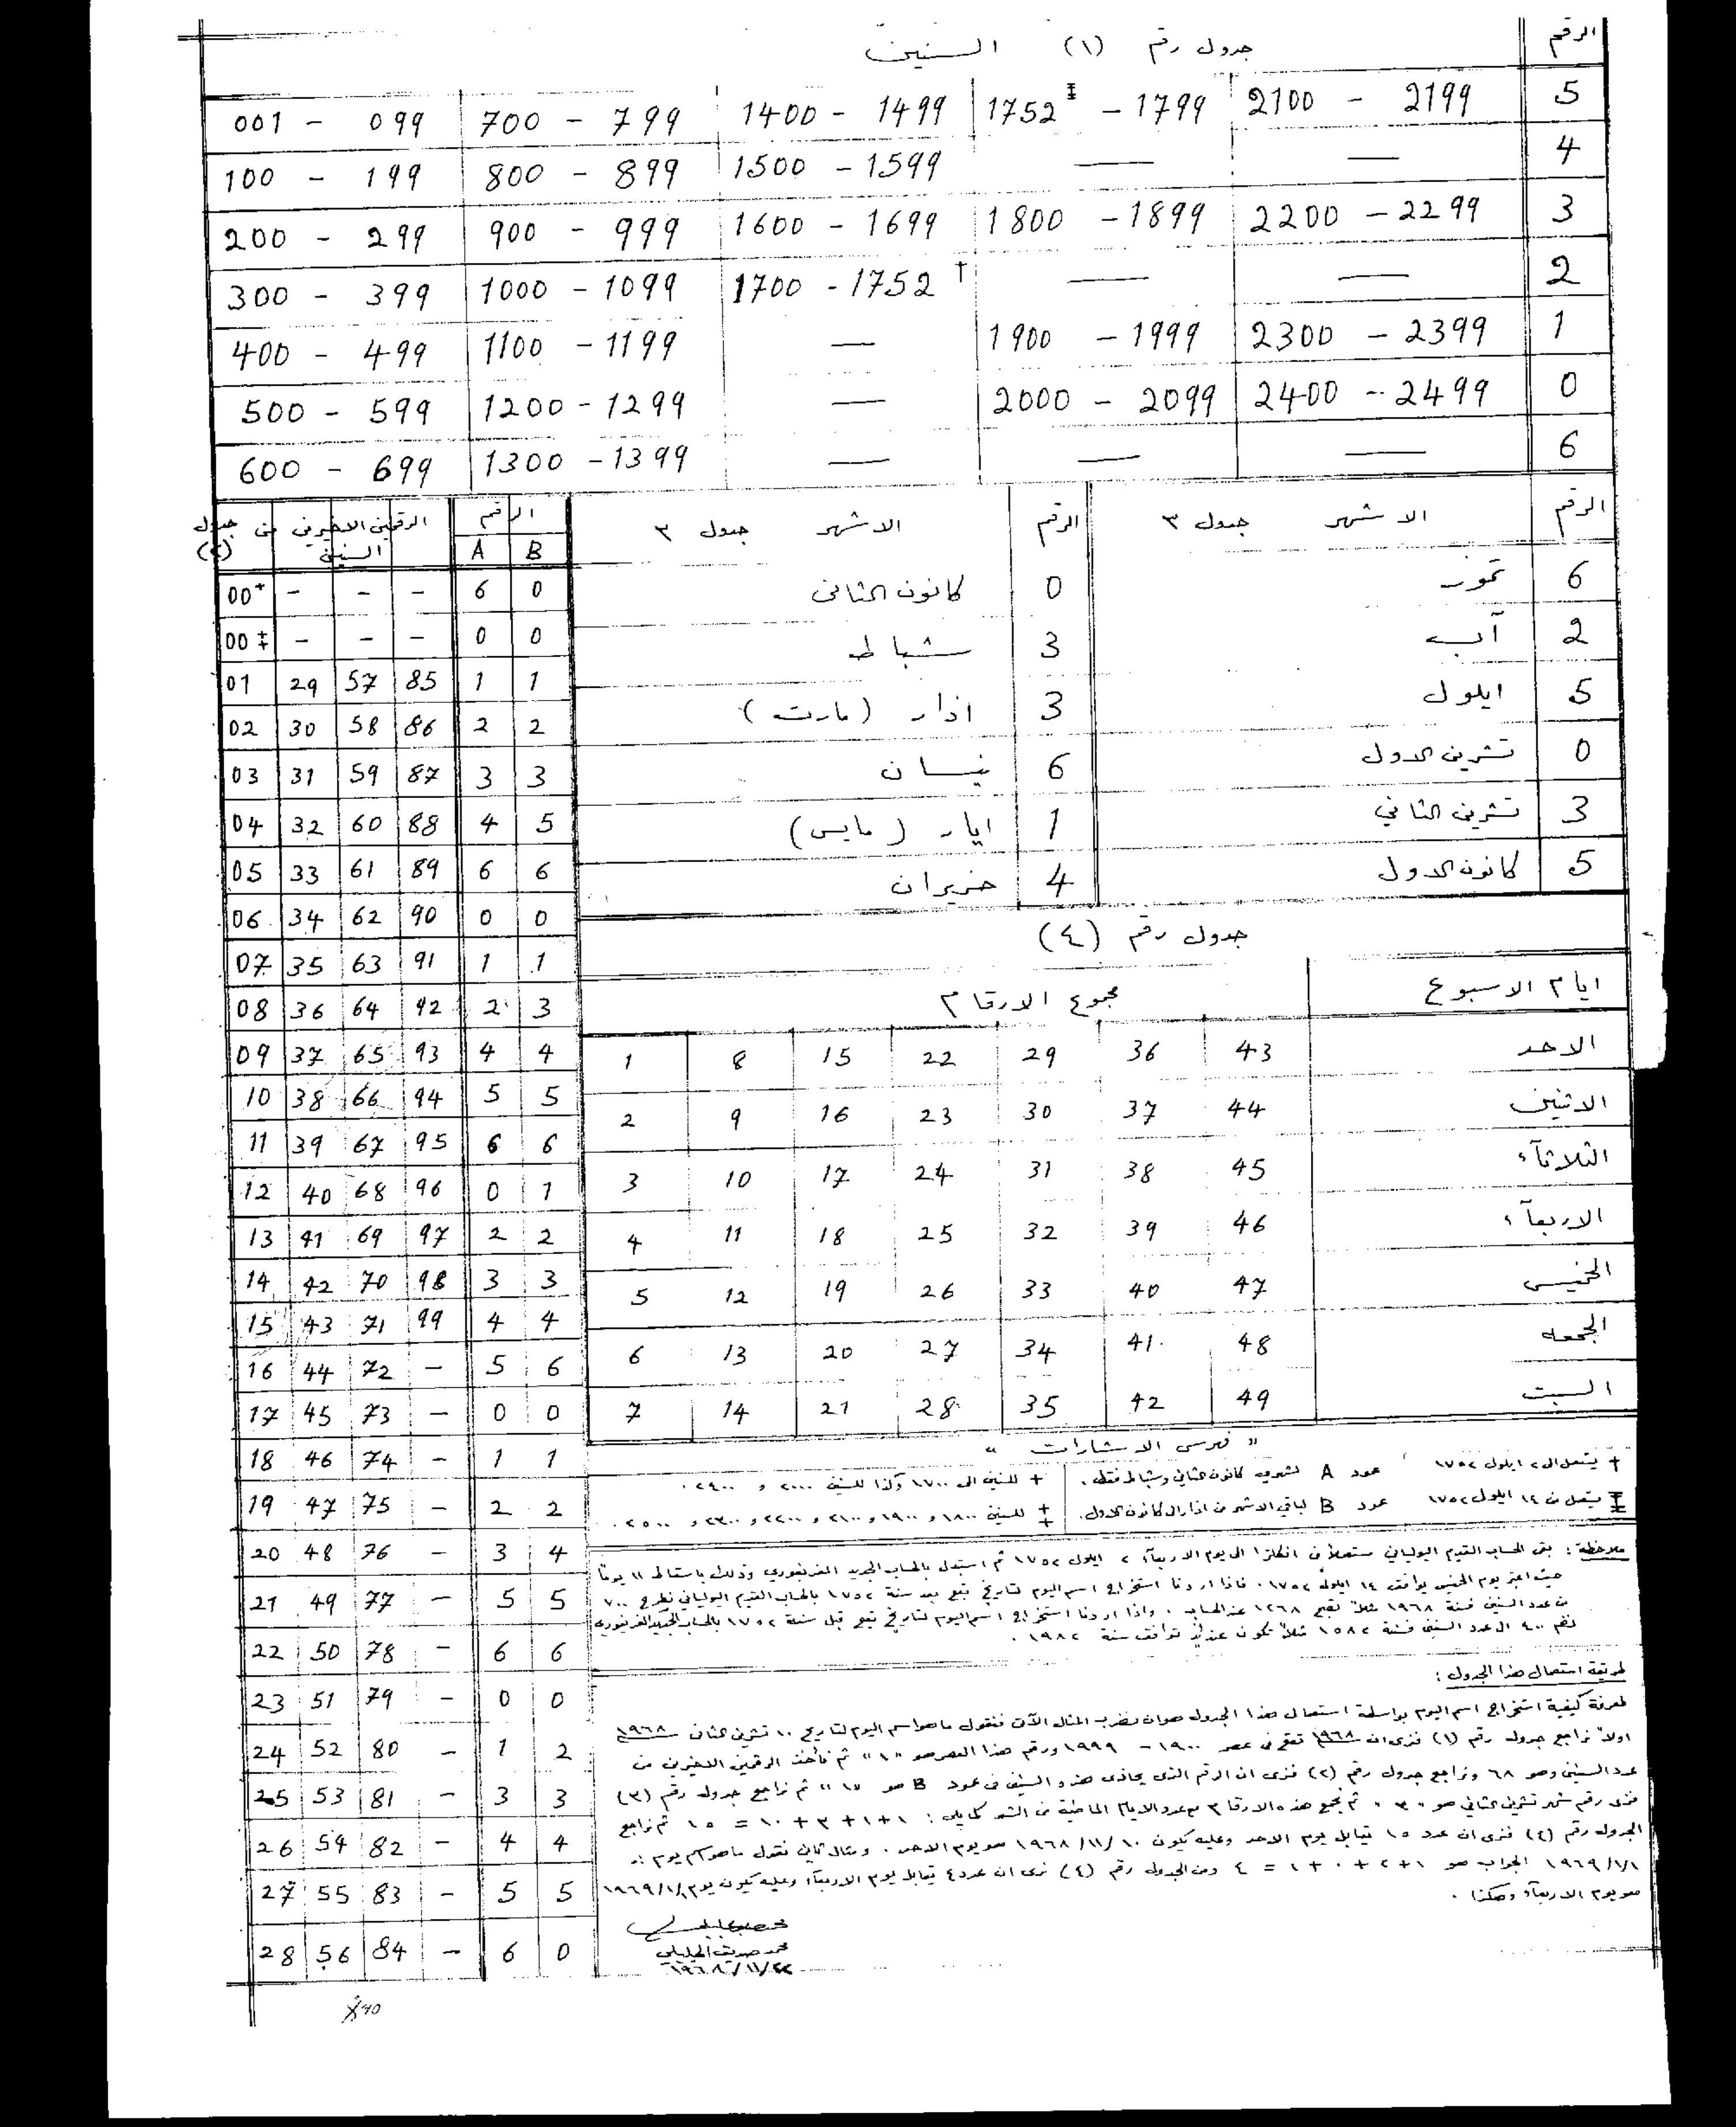 جدول رقم (١) السنين الرقم
001 - 099 700 - 799 1400 - 1499 1752 - 1799 2100 - 2199 5
100 - 199 800 - 899 1500 - 1599 — — 4
200 - 299 900 - 999 1600 - 1699 1800 - 1899 2200 - 2299 3
300 - 399 1000 - 1099 1700 - 1752 † — — 2
400 - 499 1100 - 1199 — 1900 - 1999 2300 - 2399 1
500 - 599 1200 - 1299 — 2000 - 2099 2400 - 2499 0
600 - 699 1300 - 1399 — — — 6
الرقم الاشهر جدول ٣
6 تموز
2 آب
5 ايلول
0 تشرين الاول
3 تشرين الثاني
5 كانون الاول
الرقم الاشهر جدول ٣
0 كانون الثاني
3 شباط
3 اذار (مارت)
6 نيسان
1 ايار (مايس)
4 حزيران
الرقمين الاخيرين من جدول الرقم
السنين (٢) A B
00+ - - - 6 0
00‡ - - - 0 0
01 29 57 85 1 1
02 30 58 86 2 2
03 31 59 87 3 3
04 32 60 88 4 5
05 33 61 89 6 6
06 34 62 90 0 0
07 35 63 91 1 1
08 36 64 92 2 3
09 37 65 93 4 4
10 38 66 94 5 5
11 39 67 95 6 6
12 40 68 96 0 1
13 41 69 97 2 2
14 42 70 98 3 3
15 43 71 99 4 4
16 44 72 - 5 6
17 45 73 - 0 0
18 46 74 - 1 1
19 47 75 - 2 2
20 48 76 - 3 4
21 49 77 - 5 5
22 50 78 - 6 6
23 51 79 - 0 0
24 52 80 - 1 2
25 53 81 - 3 3
26 54 82 - 4 4
27 55 83 - 5 5
28 56 84 - 6 0
جدول رقم (٤)
ايام الاسبوع مجموع الارقام
الاحد 1 8 15 22 29 36 43
الاثنين 2 9 16 23 30 37 44
الثلاثآء 3 10 17 24 31 38 45
الاربعآء 4 11 18 25 32 39 46
الخميس 5 12 19 26 33 40 47
الجمعه 6 13 20 27 34 41 48
السبت 7 14 21 28 35 42 49
" فهرس الاشارات "
† يستعمل الى ٢ ايلول ١٧٥٢ عمود A لشهري كانون الثاني وشباط فقط . + للسنين الى ١٧٠٠ وكذا للسنين ٢٠٠٠ و ٢٤٠٠ .
يستعمل من ١٤ ايلول ١٧٥٢ عمود B لباقي الاشهر من اذار الى كانون الاول . ‡ للسنين ١٨٠٠ و ١٩٠٠ و ٢١٠٠ و ٢٢٠٠ و ٢٣٠٠ و ٢٥٠٠ .
ملاحظة : بقي الحساب القديم اليولياني مستعملاً في انكلترا الى يوم الاربعآء ٢ ايلول ١٧٥٢ ثم استبدل بالحساب الجديد الغريغوري وذلك باسقاط ١١ يوماً
حيث اعتبر يوم الخميس يوافق ١٤ ايلول ١٧٥٢ . فاذا اردنا استخراج اسم اليوم لتاريخ يقع بعد سنة ١٧٥٢ بالحساب القديم اليولياني نطرح ٧٠٠
من عدد السنين فسنة ١٩٦٨ مثلاً تصبح ١٢٦٨ عند الحساب . واذا اردنا استخراج اسم اليوم لتاريخ يقع قبل سنة ١٧٥٢ بالحساب الجديد الغريغوري
نضم ٤٠٠ الى عدد السنين فسنة ١٥٨٢ مثلاً تكون عندئذٍ توافق سنة ١٩٨٢ .
طريقة استعمال هذا الجدول :
لمعرفة كيفية استخراج اسم اليوم بواسطة استعمال هذا الجدول هو ان نضرب المثال الآتي فنقول ما هو اسم اليوم لتاريخ ١٠ تشرين الثاني ١٩٦٨
اولاً نراجع جدول رقم (١) فنرى ان ١٩٦٨ تقع في عصر ١٩٠٠ - ١٩٩٩ ورقم هذا العصر هو "١" ثم نأخذ الرقمين الاخيرين من
عدد السنين وهو ٦٨ ونراجع جدول رقم (٢) فنرى ان الرقم الذي يحاذي هذه السنين في عمود B هو "١" ثم نراجع جدول رقم (٣)
فنرى رقم شهر تشرين الثاني هو "٣" ثم نجمع هذه الارقام مع عدد الايام الماضية من الشهر كما يلي : ١ + ١ + ٣ + ١٠ = ١٥ ثم نراجع
الجدول رقم (٤) فنرى ان عدد ١٥ يقابل يوم الاحد وعليه يكون ١٠ / ١١ / ١٩٦٨ هو يوم الاحد . ومثال ثاني نقول ما هو اسم يوم
١ / ١ / ١٩٦٩ الجواب هو ١ + ٢ + ٠ + ١ = ٤ ومن الجدول رقم (٤) نرى ان عدد ٤ يقابل يوم الاربعآء وعليه يكون يوم ١ / ١ / ١٩٦٩
هو يوم الاربعآء وهكذا .
محمد صديق الجليلي
٢٢ / ١١ / ١٩٦٨